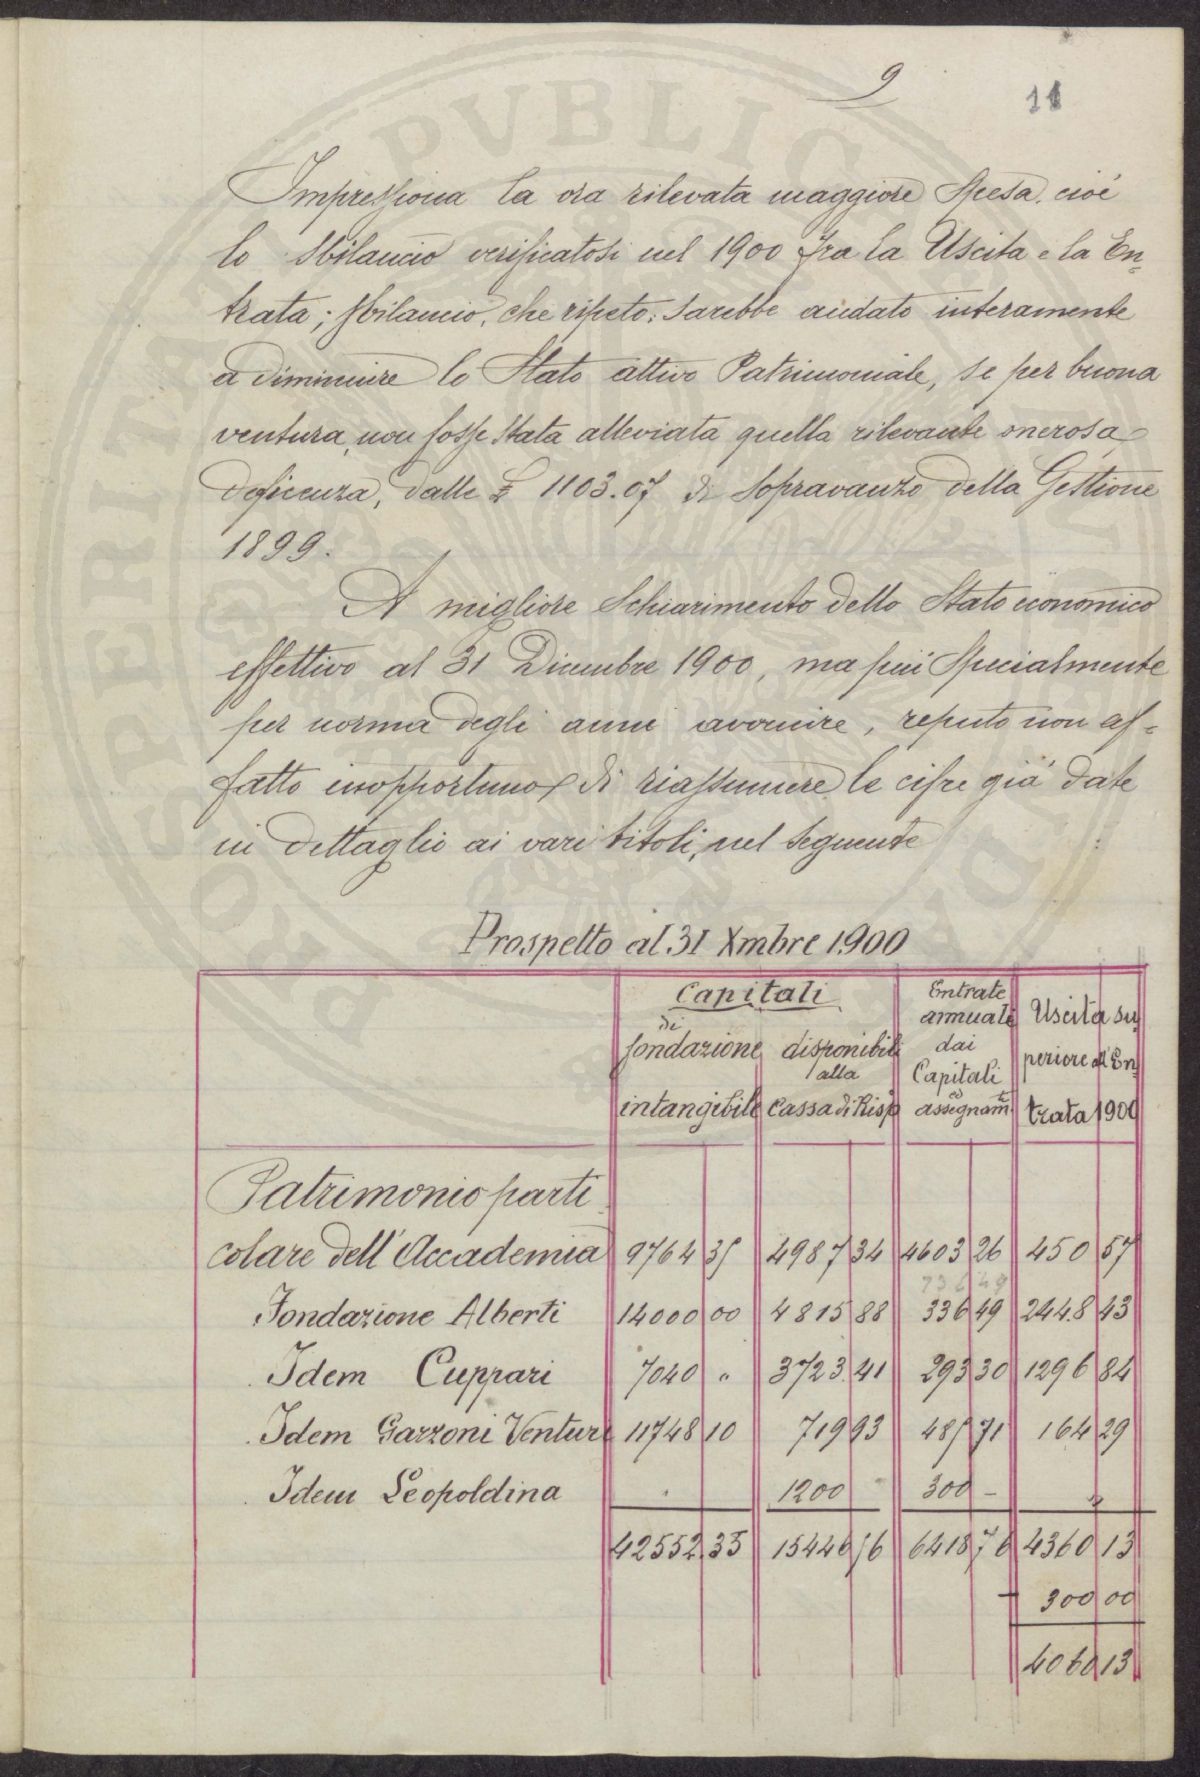 9
11
Impressiona la ora rilevata maggiore Spesa, cioè
lo sbilancio verificatosi nel 1900 fra la Uscita e la En-
trata; sbilancio, che ripeto, sarebbe andato interamente
a diminuire lo Stato attivo Patrimoniale, se per buona
ventura, non fosse stata alleviata quella rilevante onerosa
deficenza, dalle £ 1103.07 di Sopravanzo della Gestione
1899.
A migliore Schiarimento dello Stato economico
effettivo al 31 Dicembre 1900, ma più Specialmente
per norma degli anni avvenire, reputo non af-
fatto inopportuno di riassumere le cifre già date
in dettaglio ai vari titoli, nel seguente
Prospetto al 31 Xmbre 1900
Capitali
di fondazione intangibile
disponibili alla Cassa di Risp
Entrate annuali dai Capitali ed assegnam.ti
Uscita superiore all'Entrata 1900
Patrimonio parti
colare dell'Accademia 9764 35 4987 34 4603 26 450 57
736 49
Fondazione Alberti 14000 00 4815 88 336 49 2448 43
Idem Cuppari 7040 " 3723 41 293 30 1296 84
Idem Gazzoni Venturi 11748 10 719 93 485 71 164 29
Idem Leopoldina " 1200 - 300 - "
42552.35 15446 56 6418 76 4360 13
- 300 00
4060 13
PROSPERITATI PUBLICAE